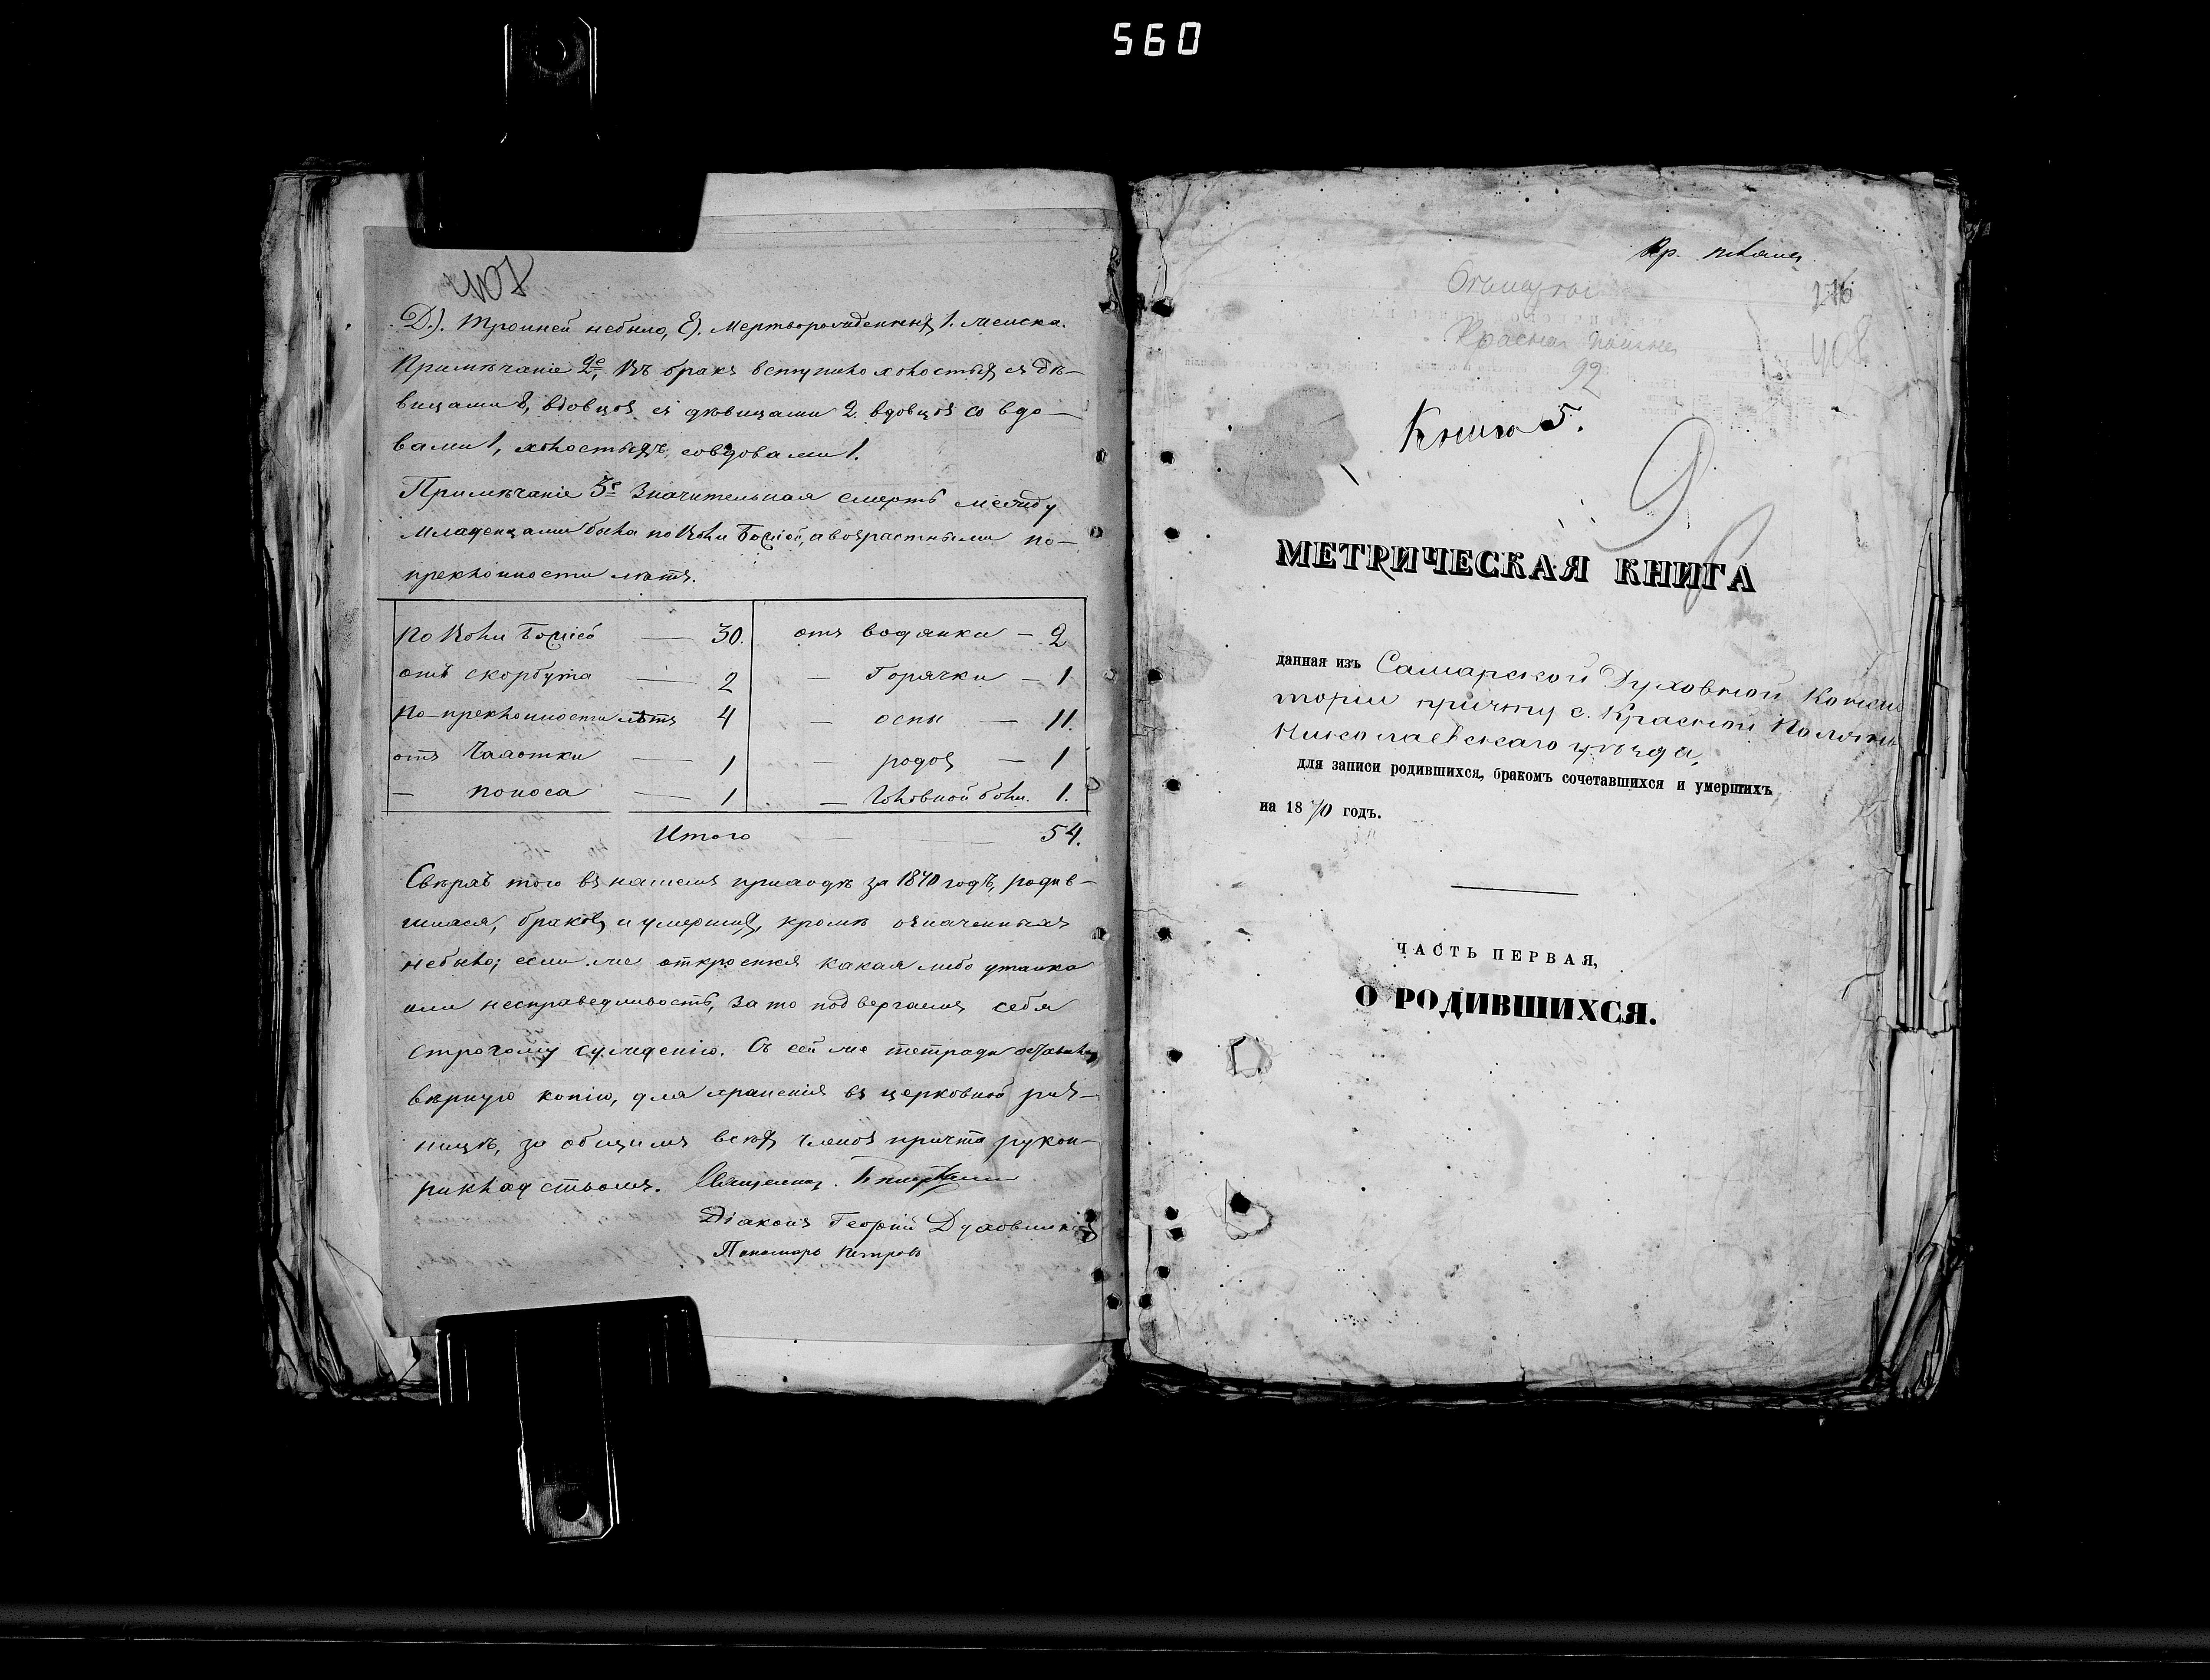 560
407
Д.). Тройней небыло, Е). Мертворожденныхъ 1. женска.
Примѣчаніе 2е, Въ бракъ вступило холостыхъ съ дѣ-
вицами 8, вдовцовъ съ дѣвицами 2. вдовцовъ со вдо-
вами 1, холостыхъ со вдовами 1.
Примѣчаніе 3е Значительная смерть между
младенцами была по Воли Божіей, а возрастными по-
преклонности лѣтъ.
По Воли Божіей — 30. отъ водянки — 2
отъ скорбута — 2 — Горячки — 1
По-преклонности лѣтъ 4 — оспы — 11.
отъ Чахотки — 1 — родовъ — 1
— поноса — 1 — Головной боли. 1.
Итого — 54.
Сверхъ того въ нашемъ приходѣ за 1870 годъ, родив-
шихся, браковъ и умершихъ, кромѣ означенныхъ
небыло; если же откроется какая либо утайка
или несправедливость, за то подвергаемъ себя
строгому сужденію. Съ сей же тетради оставили
вѣрную копію, для храненія въ церковной риз-
ницѣ, за общимъ всѣхъ членовъ причта рукоп-
рикладствомъ. Священникъ
Діаконъ Георгій Духовниковъ
Пономарь Петровъ
Кр. поляна
276
Красная поляна
408
92
Книга 5.
9
МЕТРИЧЕСКАЯ КНИГА
данная изъ Самарской Духовной Консис
торіи причту с. Красной Поляны
Николаевскаго уѣзда,
для записи родившихся, бракомъ сочетавшихся и умершихъ
на 1870 годъ.
ЧАСТЬ ПЕРВАЯ,
О РОДИВШИХСЯ.